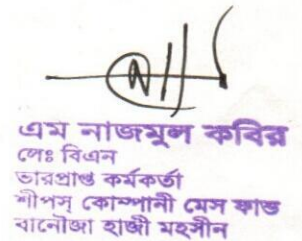 এম নাজমুল কবির
লেঃ বিএন
ভারপ্রাপ্ত কর্মকর্তা
শীপস্ কোম্পানী মেস ফান্ড
বানৌজা হাজী মহসীন